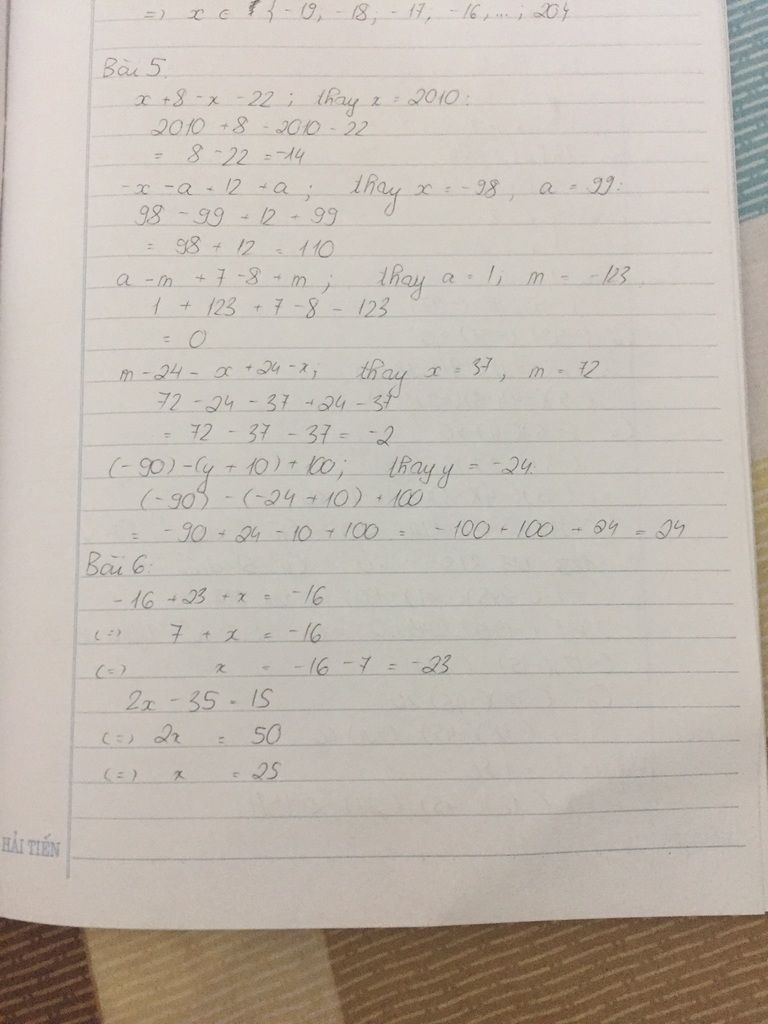 =) x ∈ { -19, -18; -17; -16,...; 20}
Bài 5.
x + 8 - x - 22 ; thay x = 2010:
2010 + 8 - 2010 - 22
= 8 - 22 = -14
-x - a + 12 + a ; thay x = -98, a = 99:
98 - 99 + 12 + 99
= 98 + 12 = 110
a - m + 7 - 8 + m ; thay a = 1, m = -123.
1 + 123 + 7 - 8 - 123
= 0
m - 24 - x + 24 - x; thay x = 37, m = 72
72 - 24 - 37 + 24 - 37
= 72 - 37 - 37 = -2
(-90) - (y + 10) + 100; thay y = -24:
(-90) - (-24 + 10) + 100
= -90 + 24 - 10 + 100 = -100 + 100 + 24 = 24
Bài 6:
-16 + 23 + x = -16
(=) 7 + x = -16
(=) x = -16 - 7 = -23
2x - 35 = 15
(=) 2x = 50
(=) x = 25
HẢI TIẾN